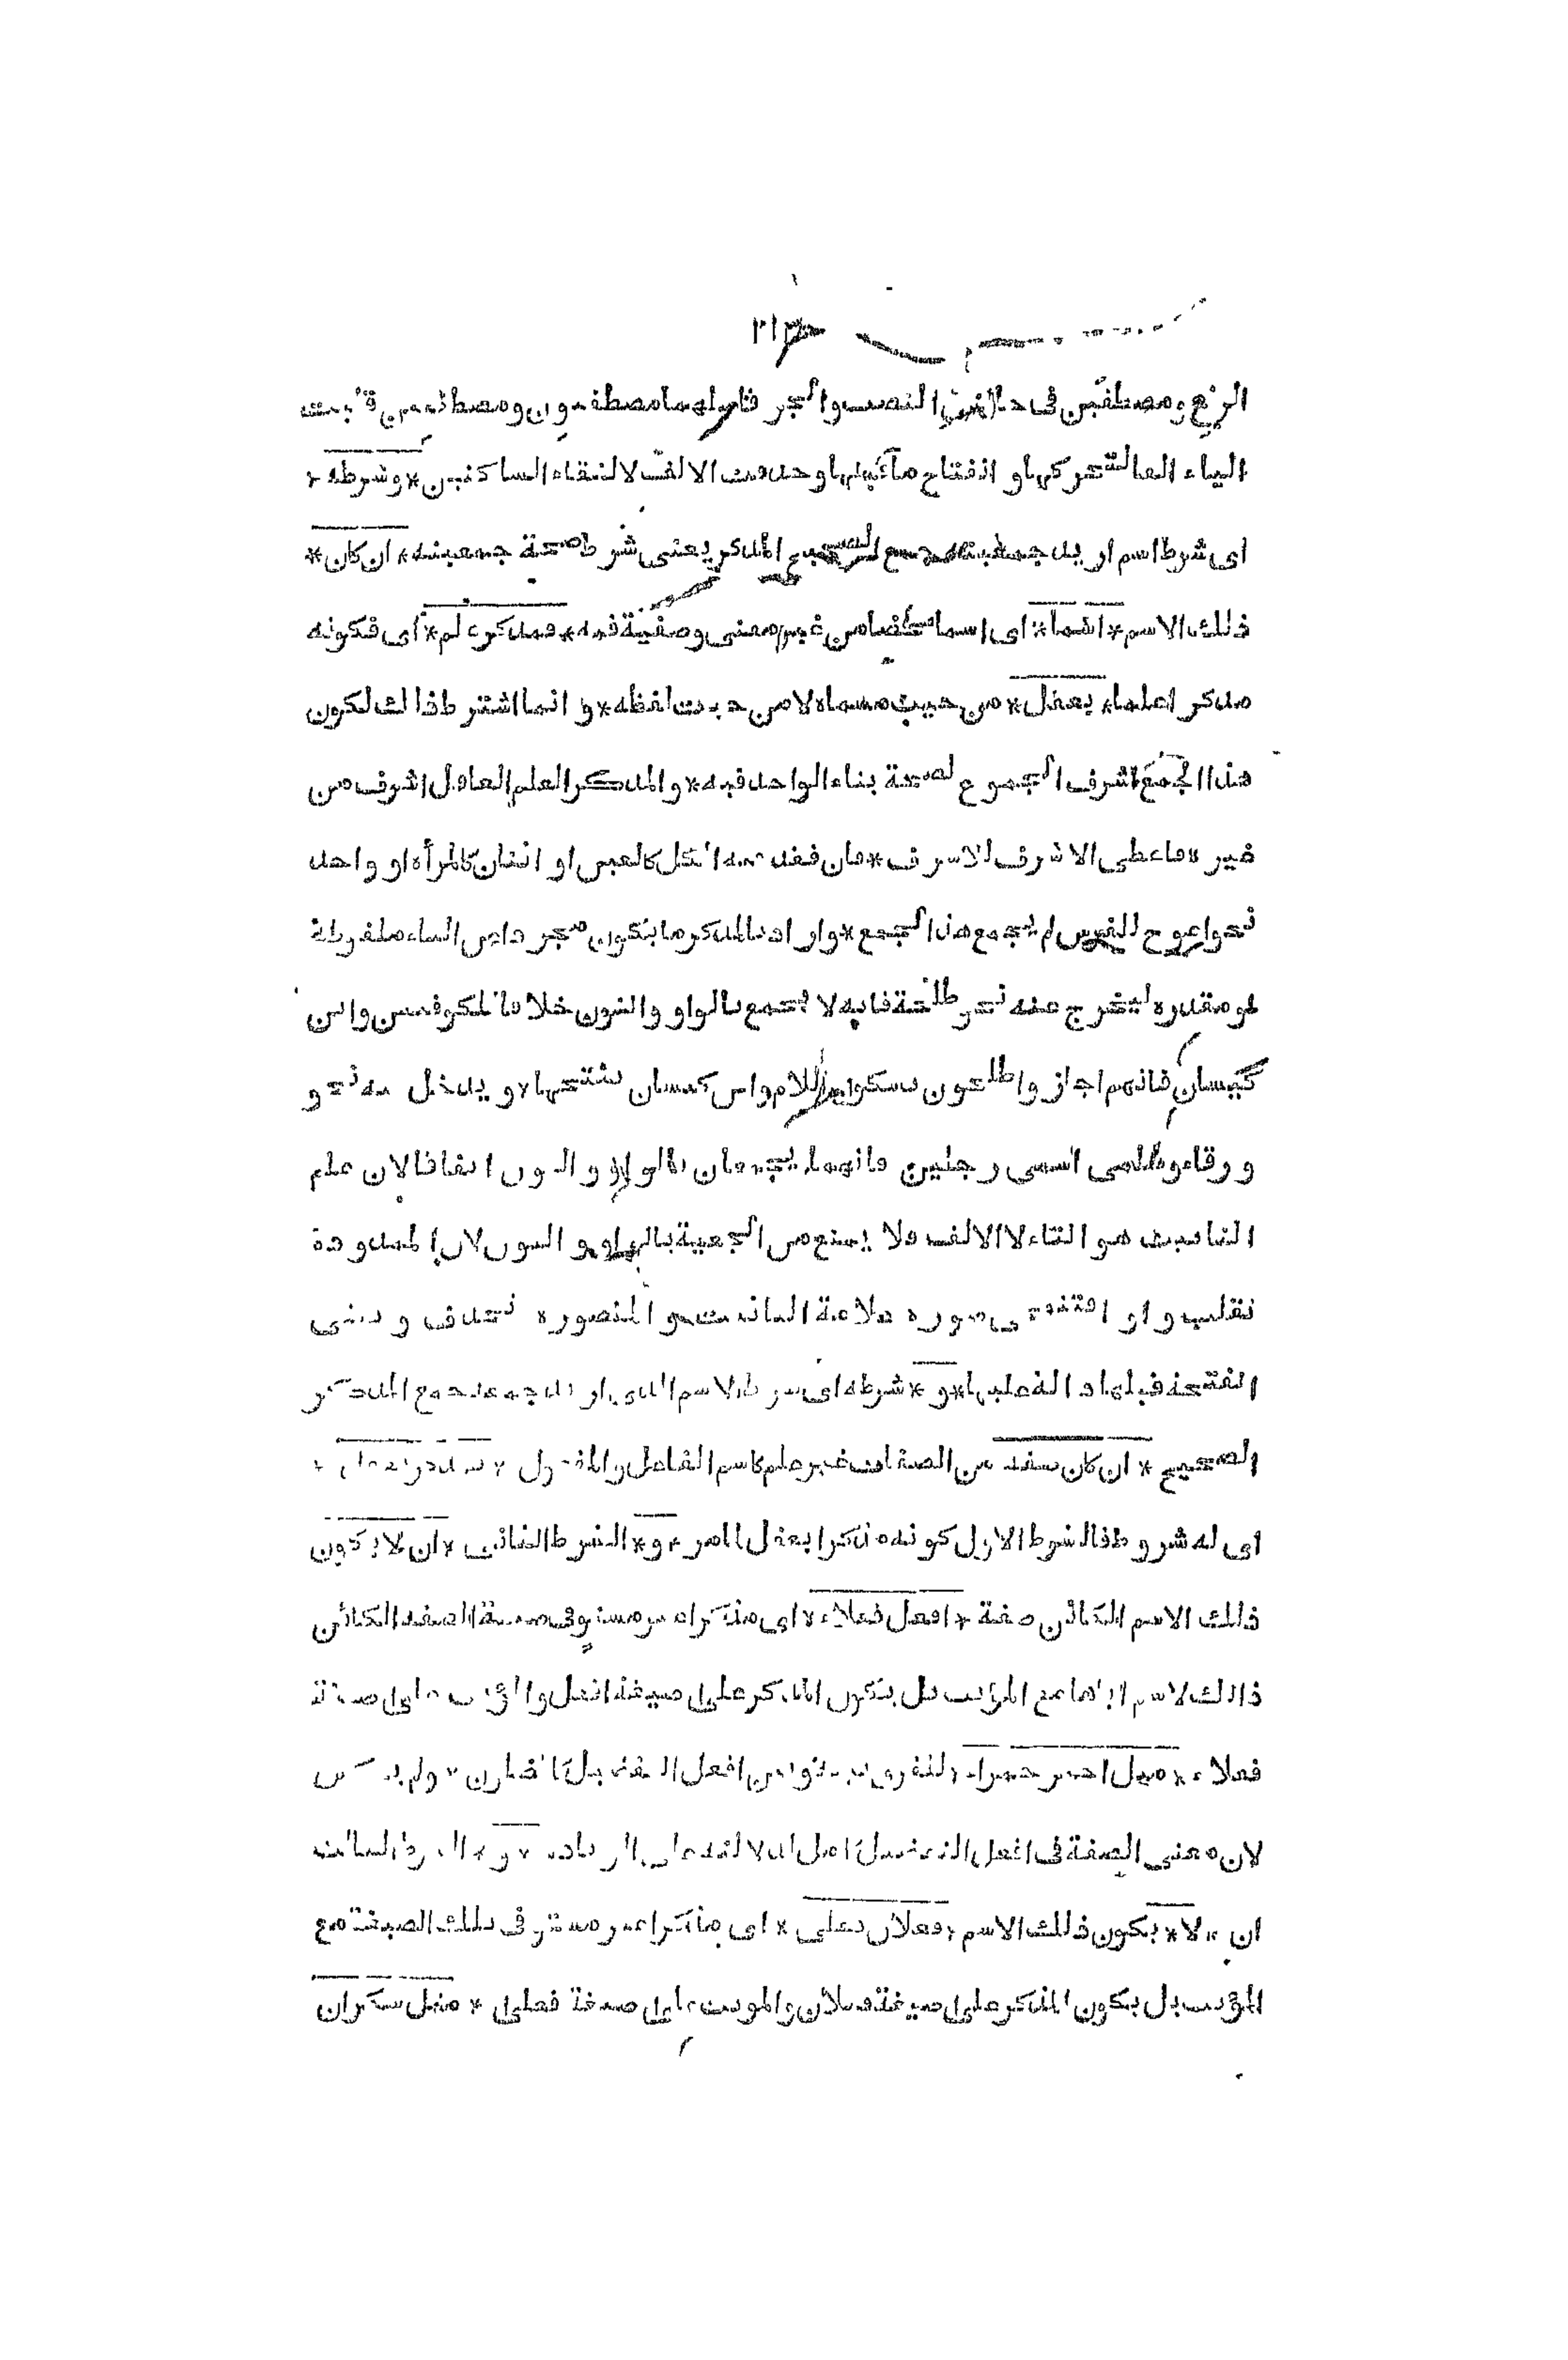 الرفع ومصطفين فى حالتى النصب والجر فاصلهما مصطفيون ومصطفيين قلبت
الياء الفا لتحركها و انفتاح ما قبلها وحذفت الالف لالتقاء الساكنين * وشرطه *
اى شرط اسم اريد جمعيته جمع الصحيح المذكر يعنى شرط صحة جمعيته * ان كان *
ذلك الاسم * اسما * اى اسما محضا من غير معنى وصفية فيه * فمذكر علم * اى فكونه
مذكرا علما * يعقل * من حيث مسماه لا من حيث لفظه * و انما اشترط ذالك لكون
هذا الجمع اشرف الجموع لصحة بناء الواحد فيه * و المذكر العلم العاقل اشرف من
غيره فاعطى الاشرف للاشرف * فان فقد منه الكل كالعين او اثنان كالمرأة او واحد
نحو اعوج للفرس لم يجمع هذا الجمع * وارادبالمذكر ما يكون مجردا عن التاء ملفوظة
او مقدره ليخرج عنه نحو طلحة فانه لا يجمع بالواو والنون خلافا للكوفيين وابن
كيسان فانهم اجازوا طلحون بسكون اللام وابن كيسان بفتحها * و يدخل فيه نحو
ورقاء وسلمى اسمى رجلين فانهما يجمعان بالواو و النون اتفاقا لان علم
التانيث هو التاء لا الالف فلا يمنع من الجمعية بالواو و النون لان الممدودة
تقلب واوا فتنمحى صورة علامة التانيث و المقصوره تحذف و تبقى
الفتحة قبلها دالة عليها * و * شرطه اى شرط الاسم الذى اريد جمعه جمع المذكر
الصحيح * ان كان صفة من الصفات غير علم كاسم الفاعل والمفعول * فمذكر يعقل *
اى له شروط فالشرط الاول كونه مذكرا يعقل لما مر * و * الشرط الثانى * ان لا يكون
ذلك الاسم الكائن صفة * افعل فعلاء * اى مذكرا غير مستو فى صيغة الصفة الكائن
ذالك الاسم اياها مع المؤنث بل يكون المذكر على صيغة افعل والمؤنث على صيغة
فعلاء * مثل احمر حمراء * للفرق بينه وبين افعل التفضيل كافضلون * ولم يعكس
لان معنى الصفة فى افعل التفضيل كامل لدلالته على الزيادة * و * الشرط الثالث
ان * لا * يكون ذلك الاسم * فعلان فعلى * اى مذكرا غير مستو فى تلك الصيغة مع
المؤنث بل يكون المذكر على صيغة فعلان والمونث على صيغة فعلى * مثل سكران